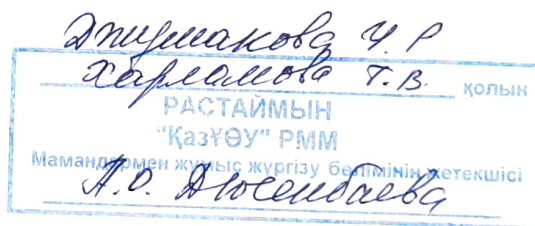 Джумакова Ч. Р
Харламова Т. В. қолын
РАСТАЙМЫН
"ҚазҰӘУ" РММ
Мамандармен жұмыс жүргізу бөлімінің жетекшісі
А.О. Дюсенбаева